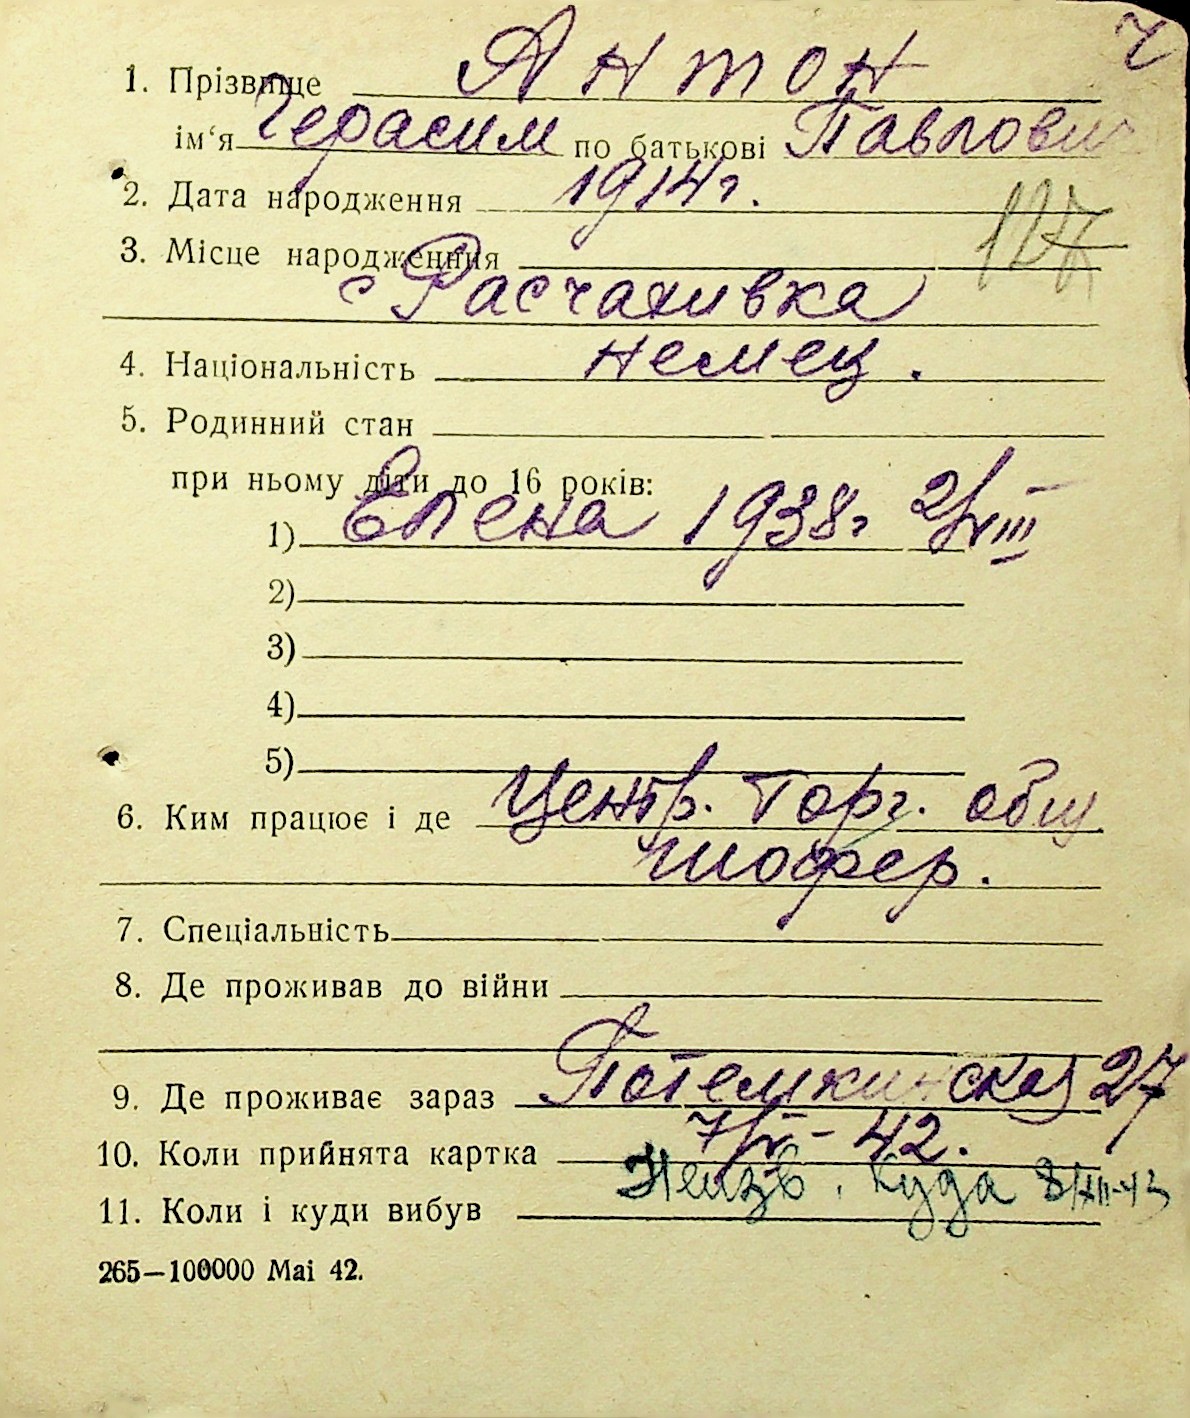 1. Прізвище Антон
ім‘я Герасим по батькові Павлович
2. Дата народження 1914 г.
127
3. Місце народження
с Расчахивка
4. Національність немец.
5. Родинний стан
при ньому діти до 16 років:
1) Елена 1938 г 2/VIII
2)
3)
4)
5)
6. Ким працює і де Центр. торг. общ
шофер.
7. Спеціальність
8. Де проживав до війни
9. Де проживає зараз Потемкинская 27
10. Коли прийнята картка 42.
11. Коли і куди вибув Неизв. куда 8/XII-43
265—100000 Mai 42.